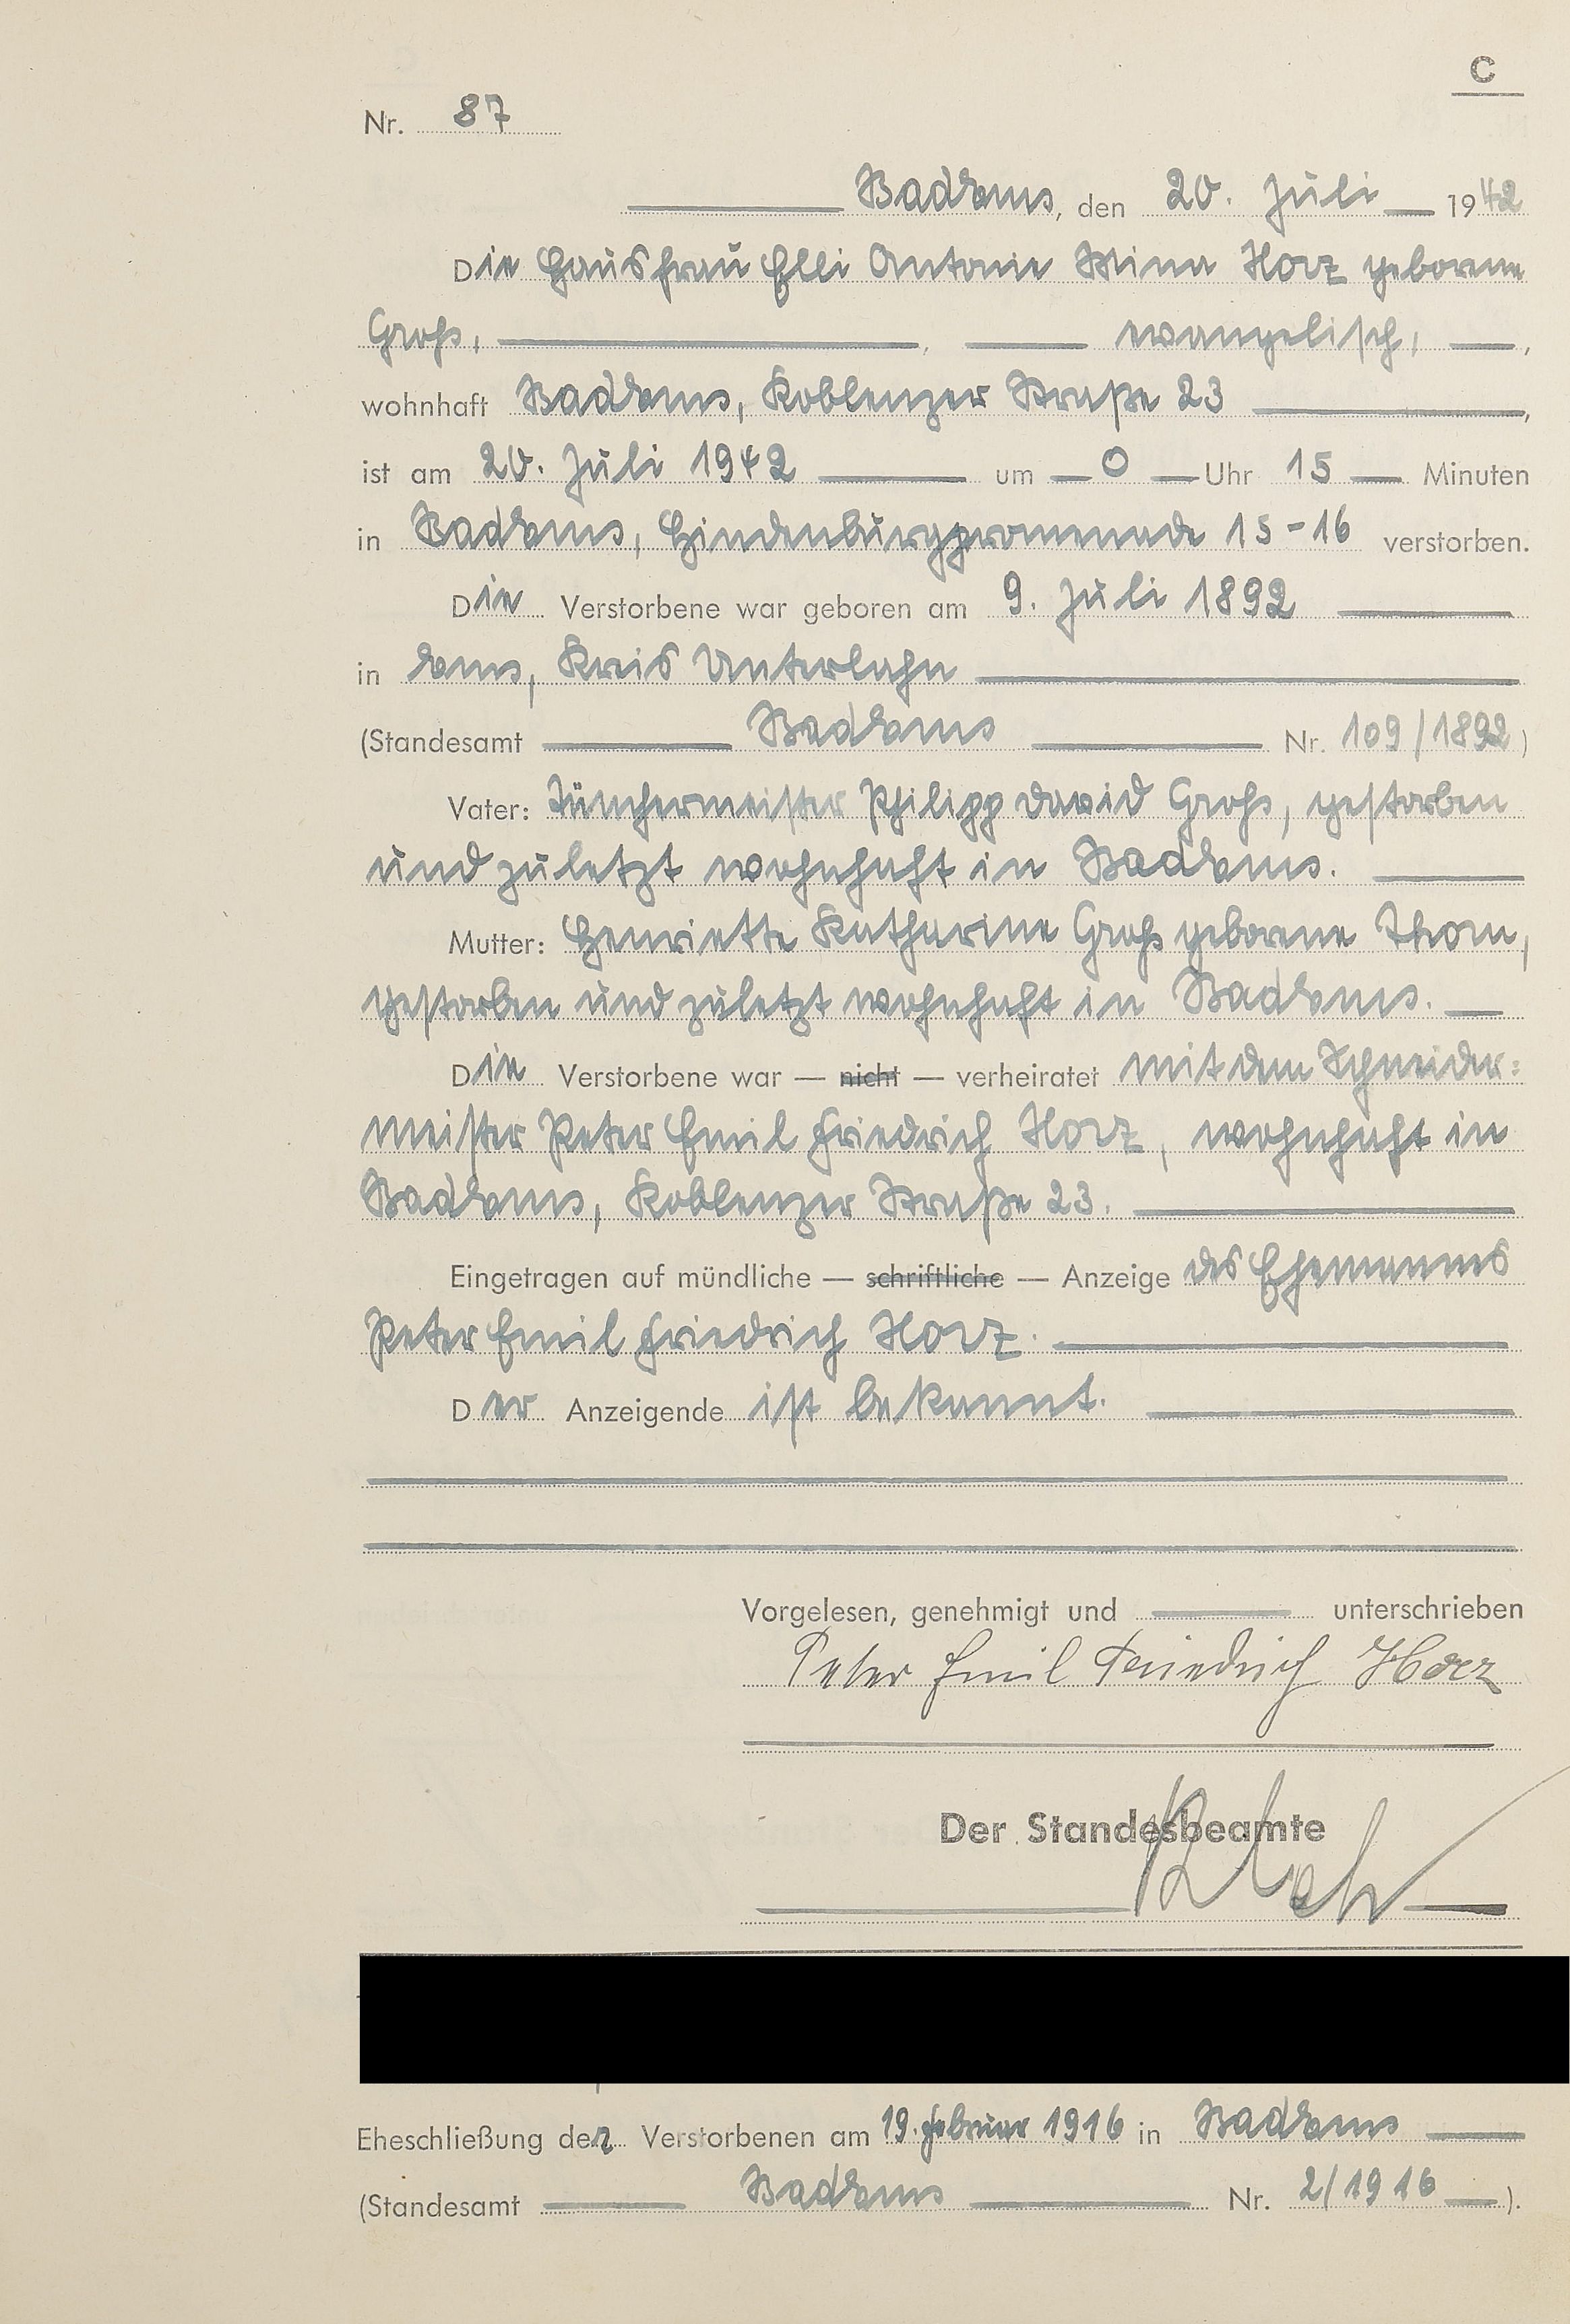 C
Nr. 87
Bad Ems, den 20. Juli 1942
Die Hausfrau Elli Antonie Mina Horz geborene
Groß, evangelisch,
wohnhaft Bad Ems, Koblenzer Straße 23,
ist am 20. Juli 1942 um 0 Uhr 15 Minuten
in Bad Ems, Hindenburgpromenade 15-16 verstorben.
Die Verstorbene war geboren am 9. Juli 1892
in Ems, Kreis Unterlahn
(Standesamt Bad Ems Nr. 109/1892)
Vater: Tünchermeister Philipp David Groß, gestorben
und zuletzt wohnhaft in Bad Ems.
Mutter: Henriette Katharine Groß geborene Thorn,
gestorben und zuletzt wohnhaft in Bad Ems.
Die Verstorbene war — nicht — verheiratet mit dem Schneider=
meister Peter Emil Friedrich Horz, wohnhaft in
Bad Ems, Koblenzer Straße 23.
Eingetragen auf mündliche — schriftliche — Anzeige des Ehemanns
Peter Emil Friedrich Horz.
Der Anzeigende ist bekannt.
Vorgelesen, genehmigt und unterschrieben
Peter Emil Friedrich Horz
Der Standesbeamte
Eheschließung der Verstorbenen am 19. Februar 1916 in Bad Ems
(Standesamt Bad Ems Nr. 2/1916).